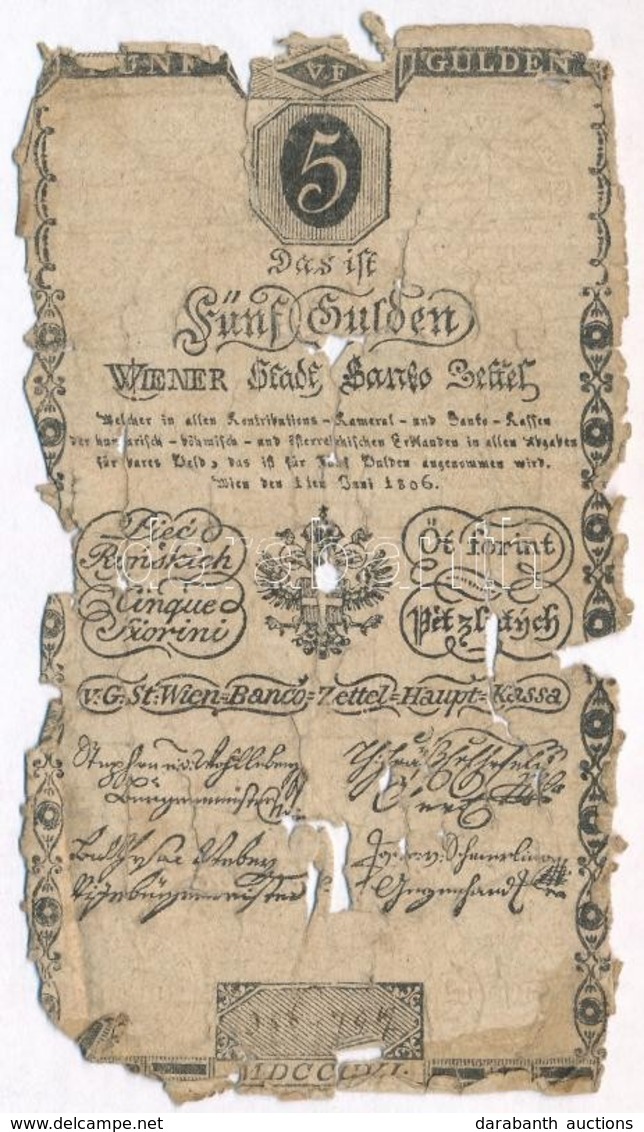 FÜNF V.F GULDEN
5
Das ist
Fünf Gulden
WIENER Stadt Banko Zettel
Welcher in allen Kontributions-Kameral-und Banko-Kassen
der hungarisch-böhmisch-und österreichischen Erblanden in allen Abgaben
für bares Geld, das ist für Fünf Gulden angenommen wird.
Wien den 1ten Juni 1806.
Pięć Ryńskich
Cinque Fiorini
Öt forint
Pět zlatých
v:G:St:Wien=Banco=Zettel=Haupt=Kassa
Stephan v: Wohlleben
Bürgermeister
Vizebürgermeister
v: Schmerling
Gegenhand
MDCCCVI.
darabanth
darabanth auctions
delcampe.net